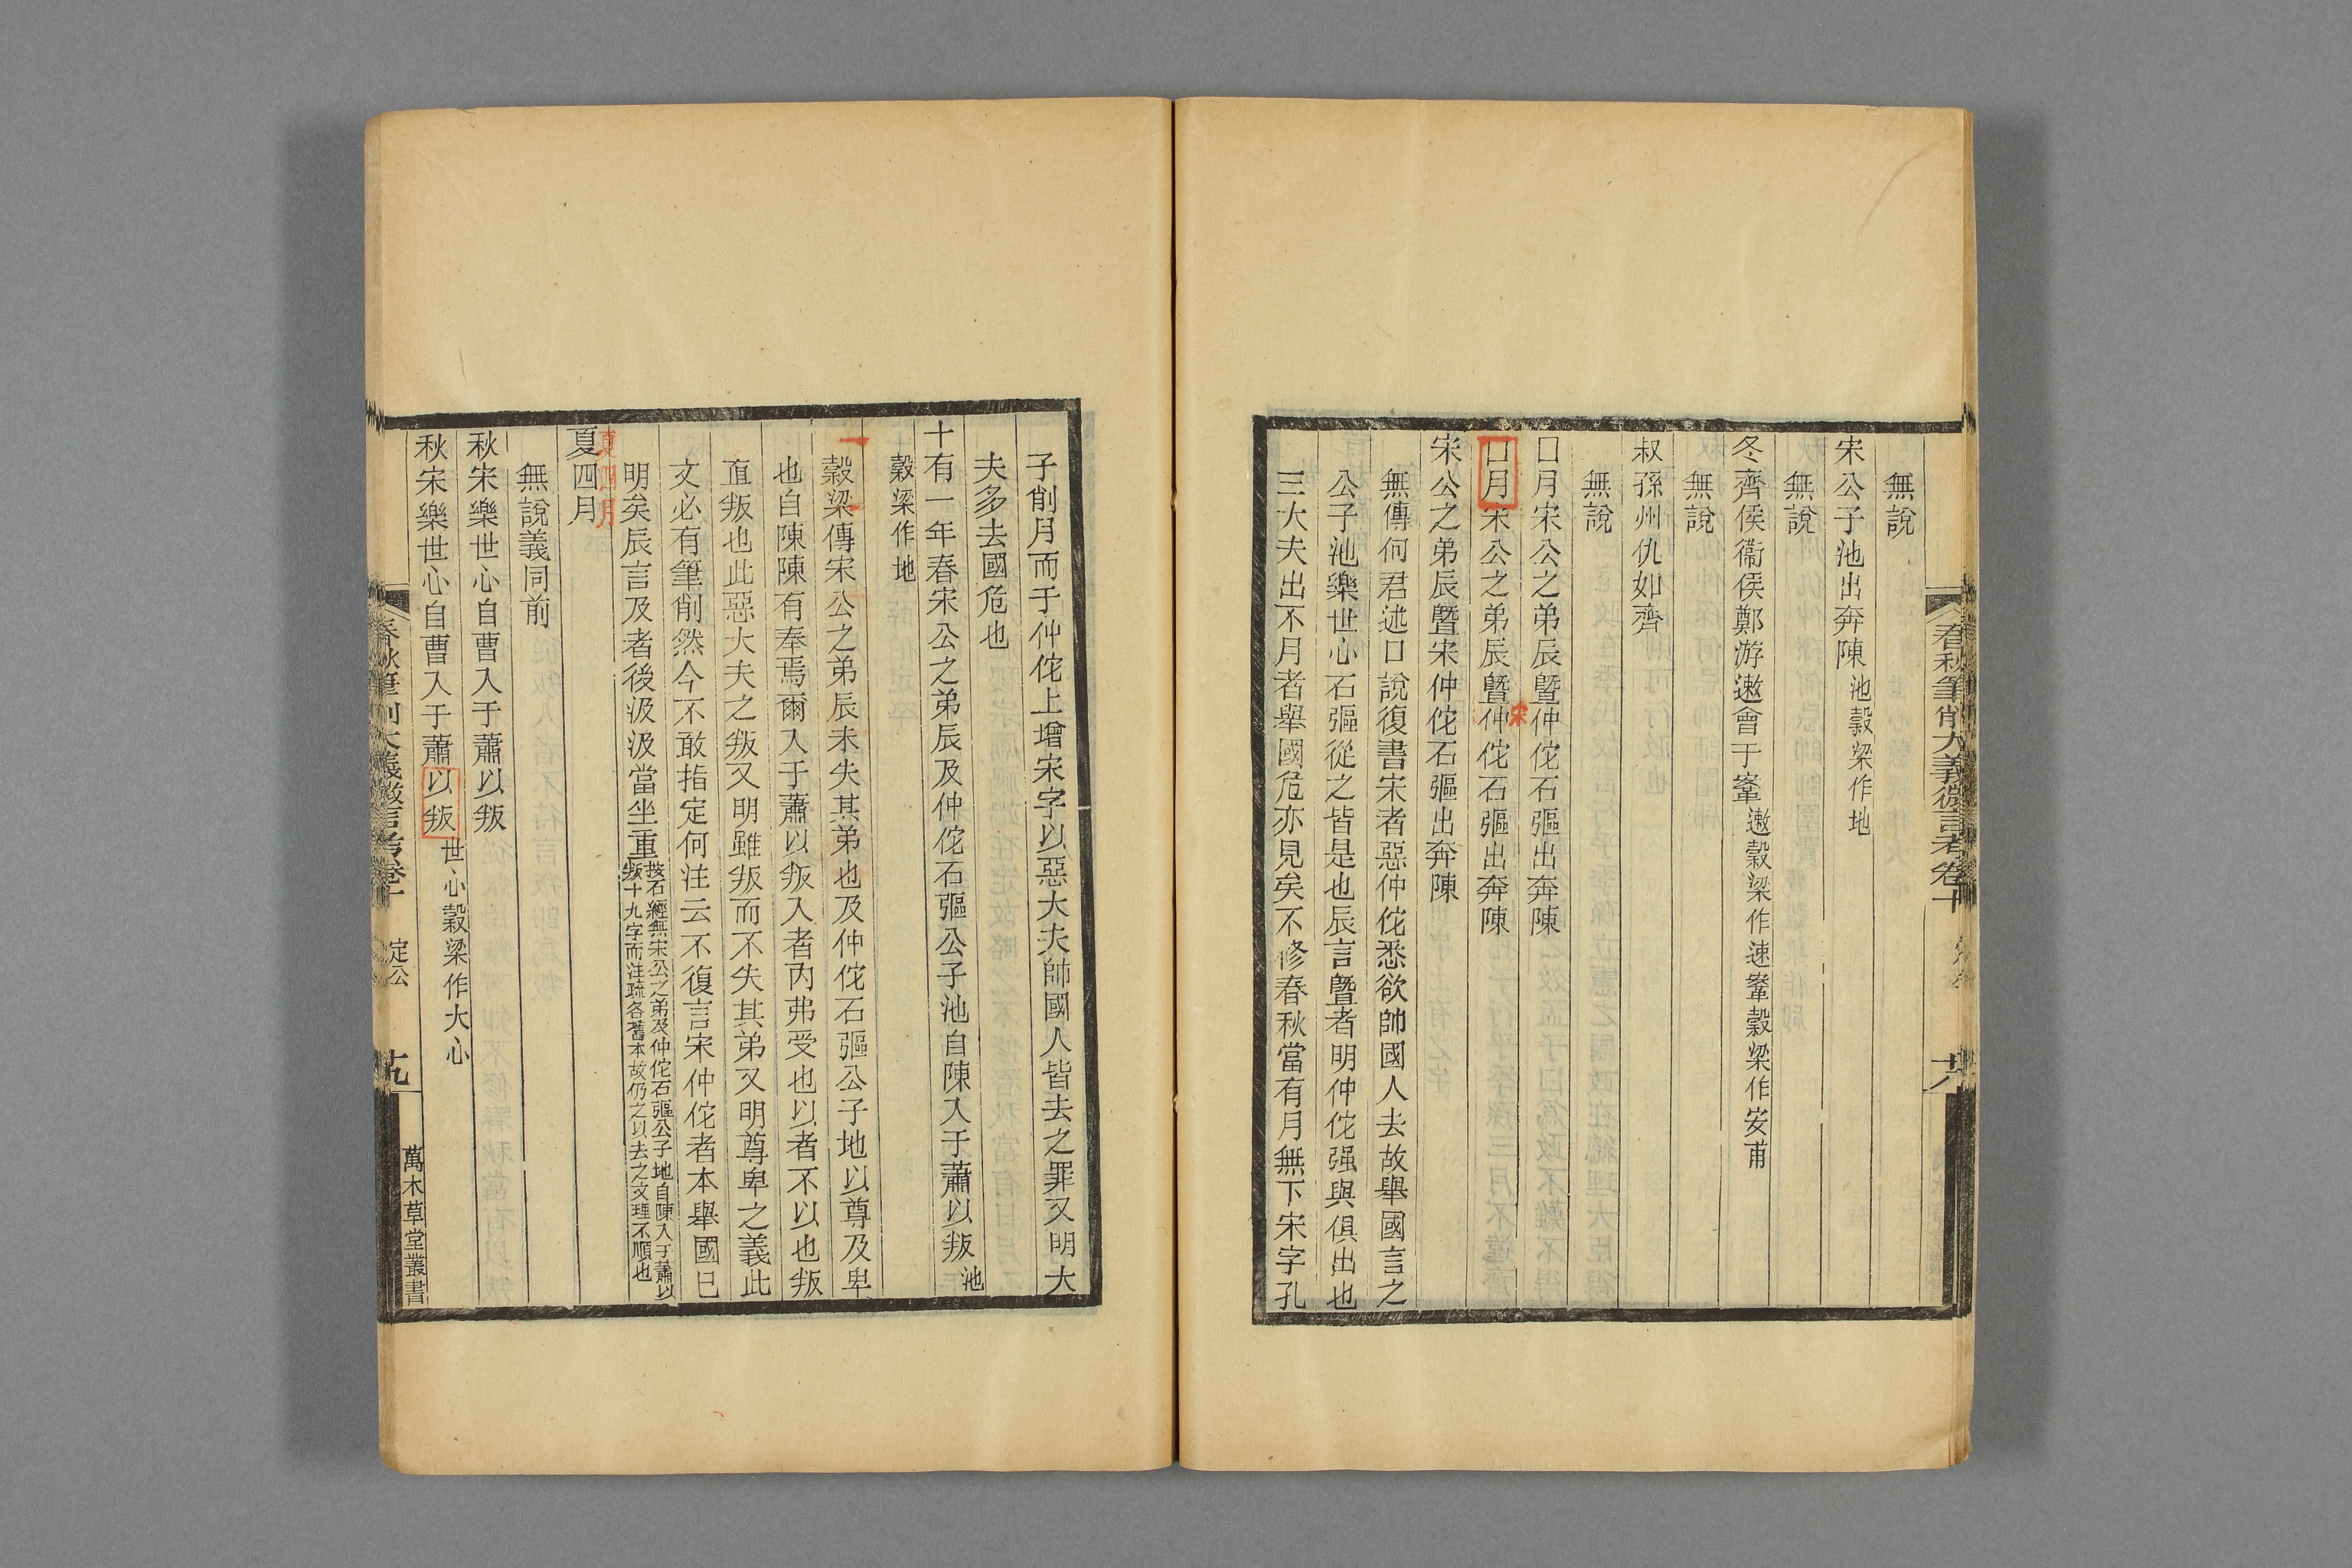 無說
宋公子池出奔陳池穀梁作地
無說
冬齊侯衞侯鄭游遬會于鞌遬穀梁作速鞌穀梁作安甫
無說
叔孫州仇如齊
無說
口月宋公之弟辰暨仲佗石彄出奔陳
口月宋公之弟辰暨宋仲佗石彄出奔陳
宋公之弟辰暨宋仲佗石彄出奔陳
無傳何君述口說復書宋者惡仲佗悉欲帥國人去故舉國言之
公子池樂世心石彄從之皆是也辰言暨者明仲佗强與俱出也
三大夫出不月者舉國危亦見矣不修春秋當有月無下宋字孔
春秋筆削大義微言考卷十
十八
子削月而于仲佗上增宋字以惡大夫帥國人皆去之罪又明大
夫多去國危也
十有一年春宋公之弟辰及仲佗石彄公子池自陳入于蕭以叛池
穀梁作地
穀梁傳宋公之弟辰未失其弟也及仲佗石彄公子地以尊及卑
也自陳陳有奉焉爾入于蕭以叛入者內弗受也以者不以也叛
直叛也此惡大夫之叛又明雖叛而不失其弟又明尊卑之義此
文必有筆削然今不敢指定何注云不復言宋仲佗者本舉國已
明矣辰言及者後汲汲當坐重
按石經無宋公之弟辰及仲佗石彄公子地自陳入于蕭以
叛十九字而注疏各舊本故仍之以去之文理不順也
夏四月
夏四月
無說義同前
秋宋樂世心自曹入于蕭以叛
秋宋樂世心自曹入于蕭以叛世心穀梁作大心
春秋筆削大義微言考卷十
定公
十九
萬木草堂叢書